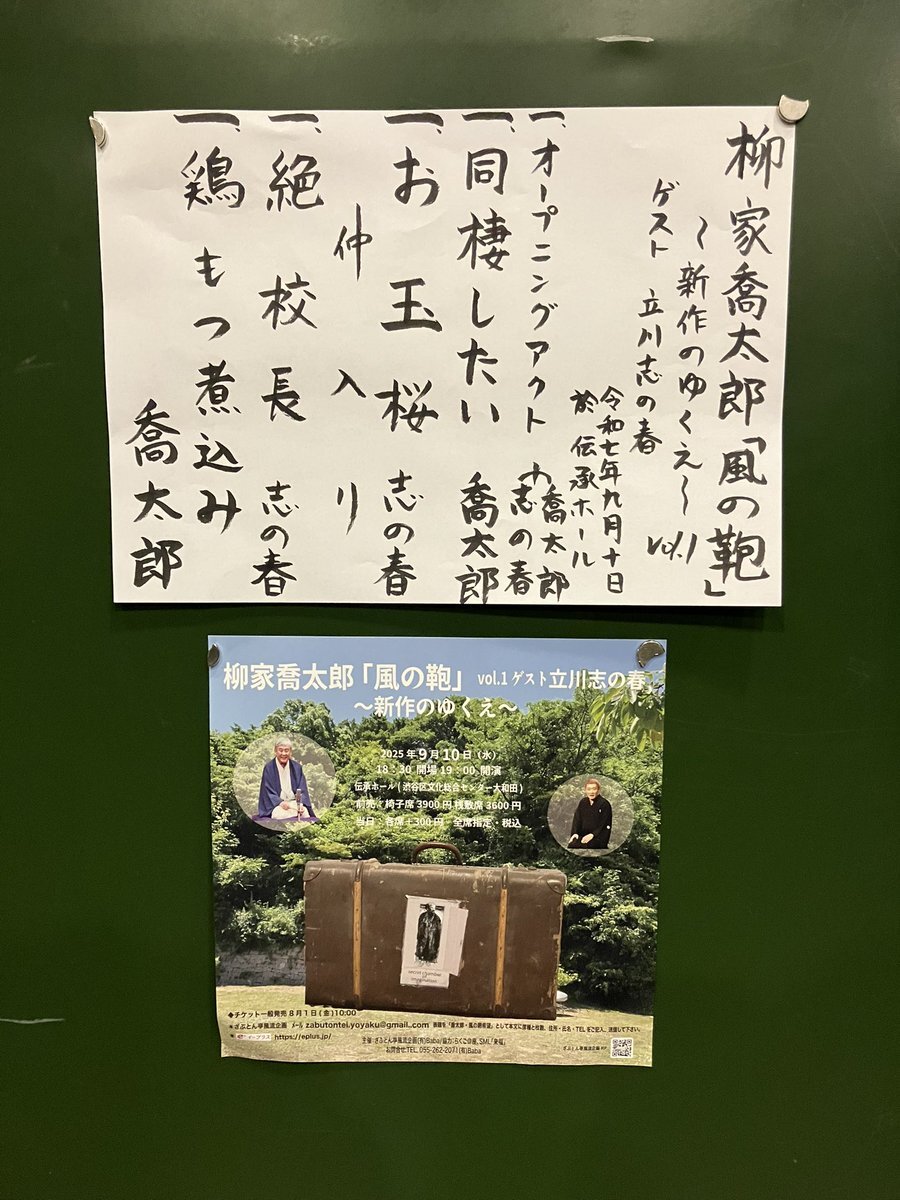 柳家喬太郎「風の鞄」
〜新作のゆくえ〜 vol.1
ゲスト 立川志の春
令和七年九月十日
於 伝承ホール
一、オープニングアクト 喬太郎
志の春
一、同棲したい 喬太郎
一、お玉桜 志の春
仲入り
一、絶校長 志の春
一、鶏もつ煮込み
喬太郎
柳家喬太郎「風の鞄」 vol.1 ゲスト 立川志の春
〜新作のゆくえ〜
2025年9月10日(水)
18:30 開場 19:00 開演
伝承ホール(渋谷区文化総合センター大和田)
前売:椅子席 3900円 桟敷席 3600円
当日:各席+300円 全席指定・税込
secret chamber
of
imagination
◆チケット一般発売 8月1日(金)10:00
★ざぶとん亭風流企画 メール zabutontei.yoyaku@gmail.com
イープラス https://eplus.jp/
主催:ざぶとん亭風流企画(有)Baba/協力:らくご@座、SML「来福」
お問合せ:TEL. 055-262-2071(有)Baba
ざぶとん亭風流企画HP